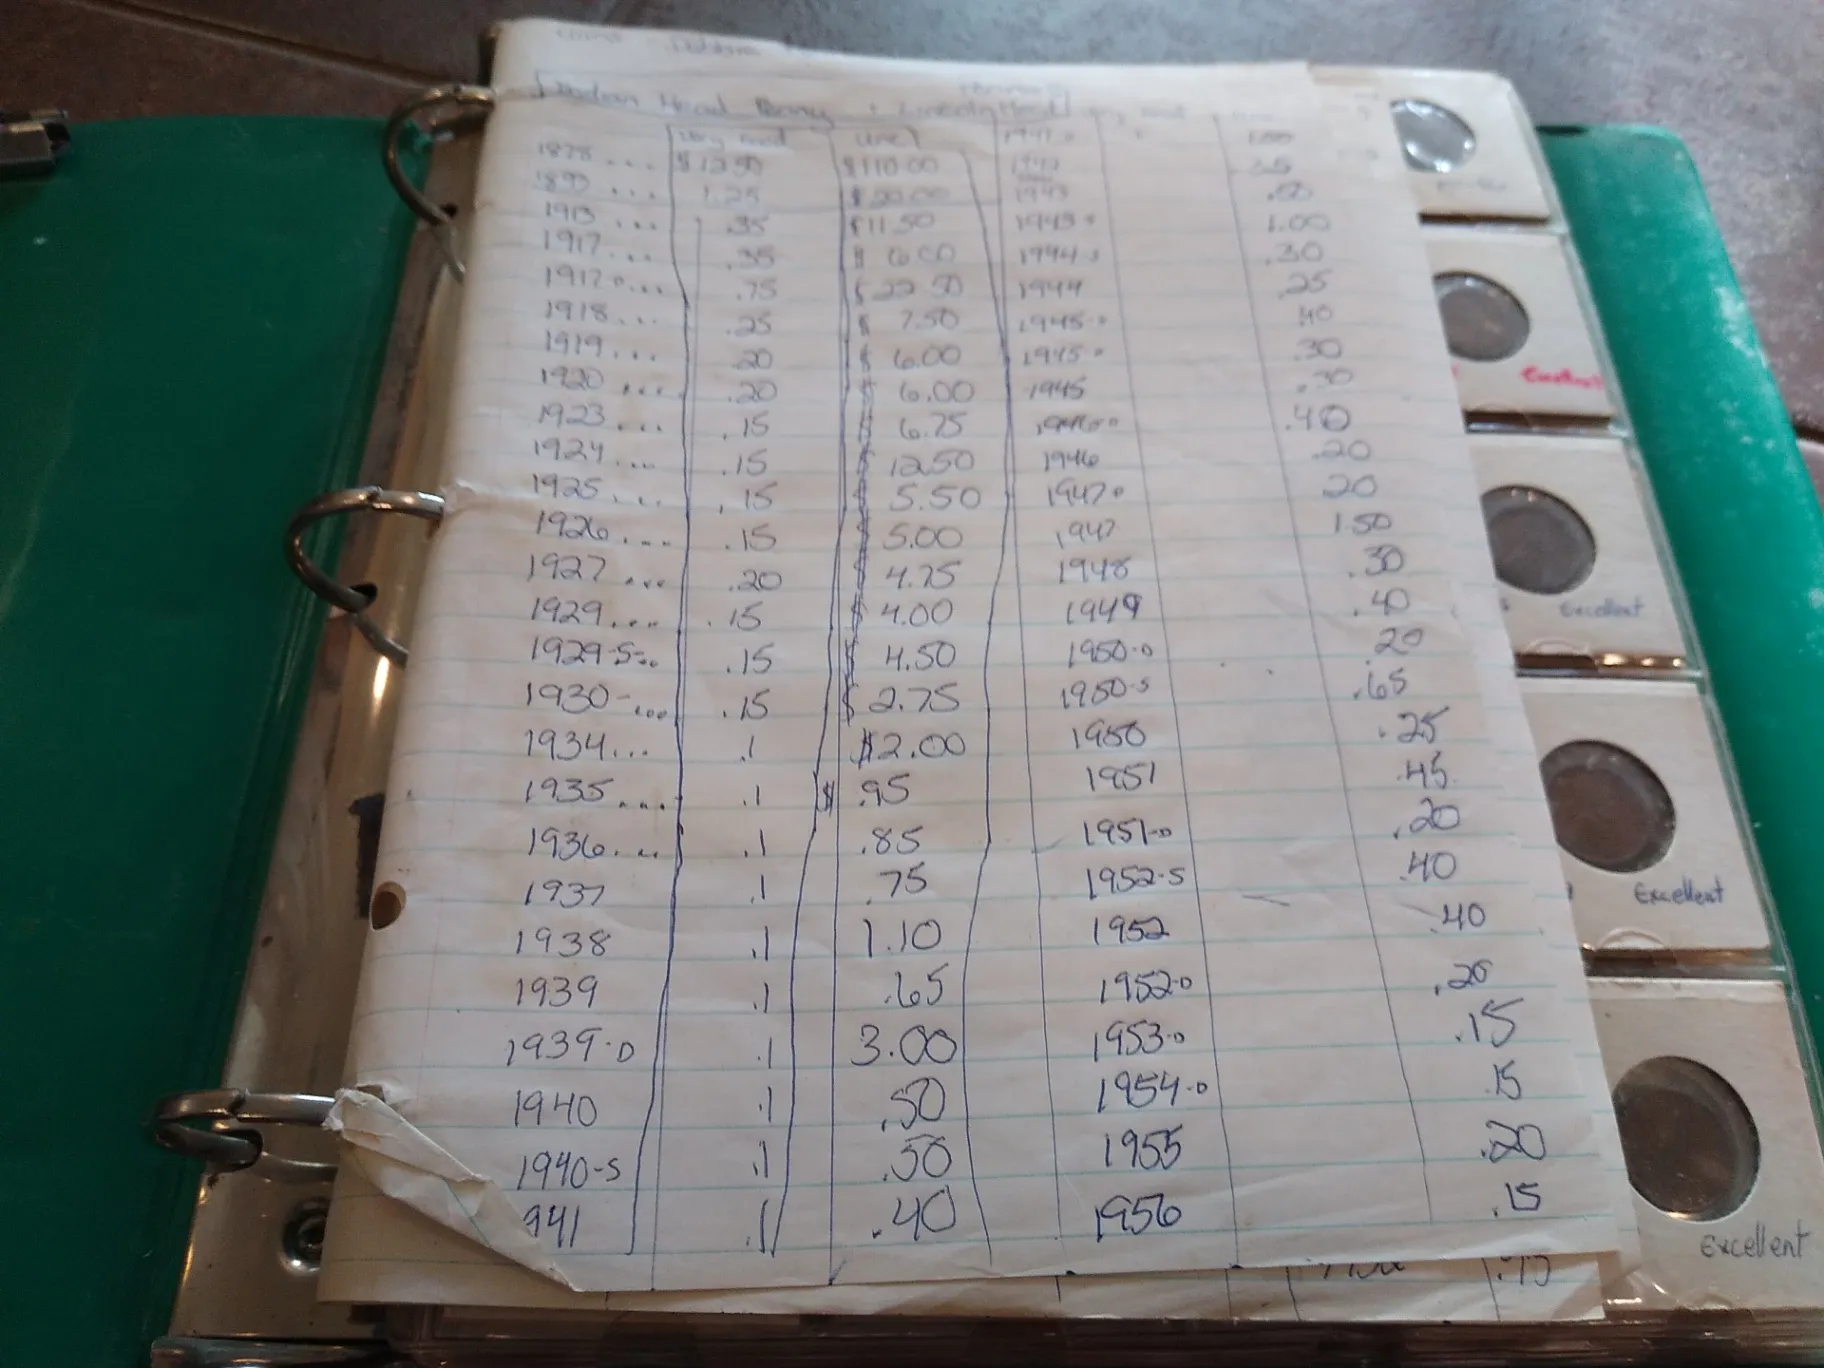 Indian Head Penny + Lincoln Head
very good Unc
1878... $12.50 $110.00 1942 .35
1893... 1.25 $20.00 1943 .60
1913... .35 $11.50 1943-D 1.00
1917... .35 $6.00 1944-D .30
1917D... .75 $22.50 1944 .25
1918... .25 $7.50 1945-D .40
1919... .20 $6.00 1945-D .30
1920... .20 $6.00 1945 .30
1923... .15 $6.75 .40
1924... .15 $12.50 1946 .20
1925... .15 $5.50 1947D 20
1926... .15 $5.00 1947 1.50
1927... .20 $4.75 1948 .30
1929... .15 $4.00 1949 .40
1929-S... .15 $4.50 1950-D 20
1930-... .15 $2.75 1950-S .65
1934... .1 $2.00 1950 .25
1935.... .1 $.95 1951 .45
1936.... .1 .85 1951-D .20
1937 .1 .75 1952-S .40
1938 .1 1.10 1952 .40
1939 .1 .65 1952-D .20
1939-D .1 3.00 1953-D .15
1940 .1 .50 1954-D .15
1940-S .1 .50 1955 .20
941 .1 .40 1956 .15
Excellent
Excellent
Excellent
Excellent